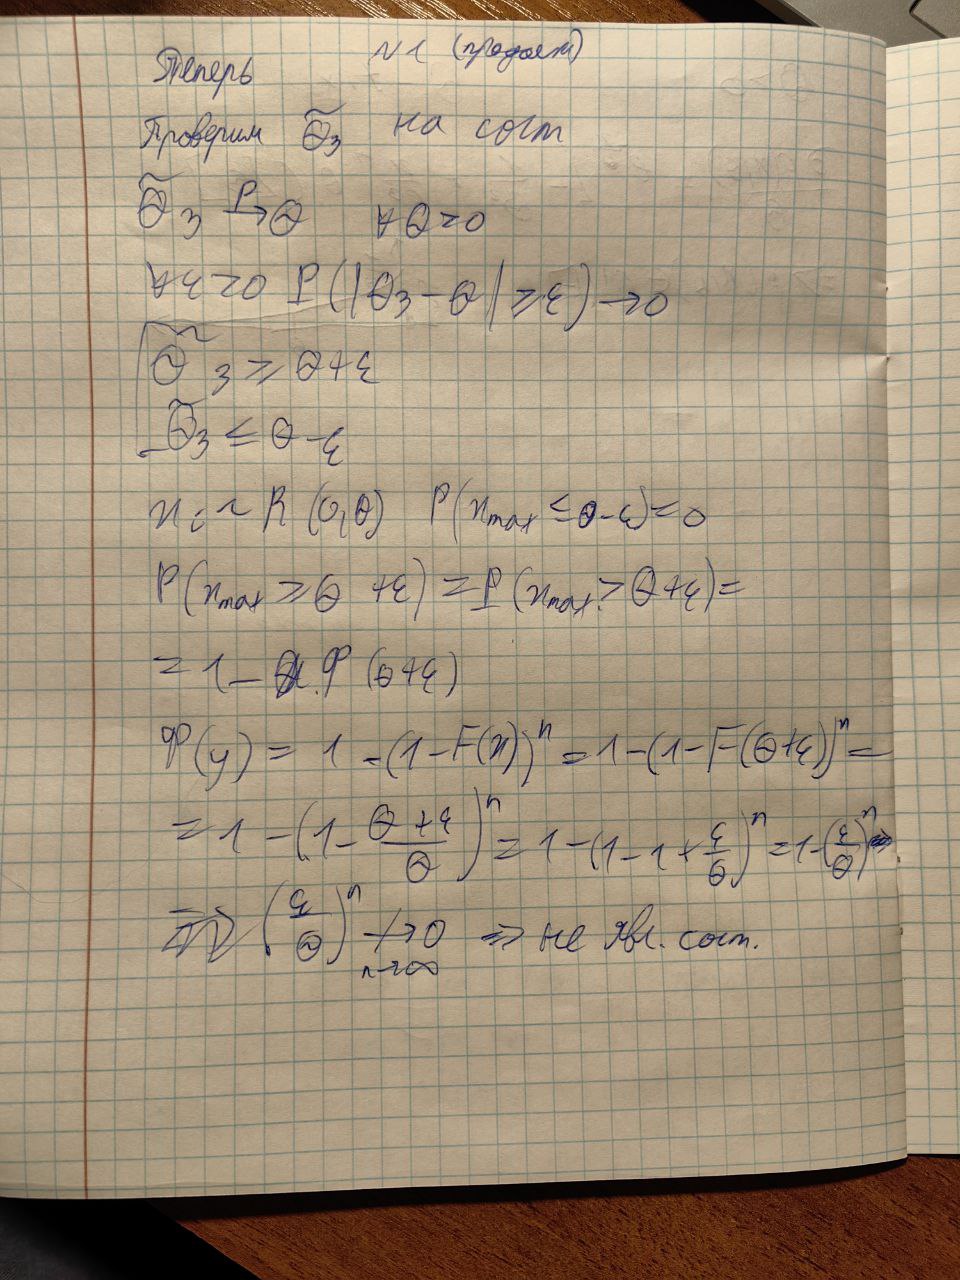 N1 (продолж)
Теперь
Проверим θ̃₃ на сост
θ̃₃ P→ θ ∀θ>0
∀ε>0 P(|θ̃₃-θ|≥ε)→0
[ θ̃₃ ≥ θ+ε
θ̃₃ ≤ θ-ε
xᵢ ~ R(0,θ) P(xmax ≤ θ-ε)=0
P(xmax ≥ θ+ε) = P(xmax > θ+ε) =
= 1 - Φ(θ+ε)
Φ(y) = 1 - (1-F(x))ⁿ = 1-(1-F(θ+ε))ⁿ =
= 1 - (1 - (θ+ε)/θ)ⁿ = 1-(1-1+ε/θ)ⁿ = 1-(ε/θ)ⁿ
(ε/θ)ⁿ ↛ 0 n→∞ ⇒ не явл. сост.